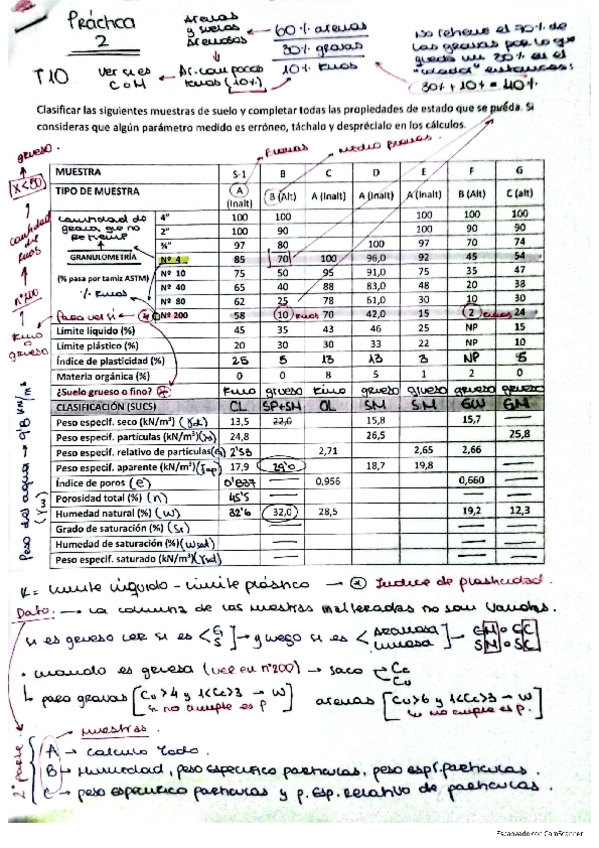 Práctica 2
T10
ver si es C o M
Arenas y suelos Arenosos
Ar. con pocos finos (10%)
60% arenas
30% gravas
10% finos
No retiene el 70% de las gravas por lo que queda un 30% en el
30% + 10% = 40%
Clasificar las siguientes muestras de suelo y completar todas las propiedades de estado que se pueda. Si
consideras que algún parámetro medido es erróneo, táchalo y desprécialo en los cálculos.
grueso.
X<50
cantidad de finos
nº200
fino o grueso
MUESTRA S-1 B C D E F G
TIPO DE MUESTRA A (Inalt) B (Alt) A (Inalt) A (Inalt) A (Inalt) B (Alt) C (alt)
cantidad de grava que no retiene
GRANULOMETRÍA
(% pasa por tamiz ASTM)
% finos
4" 100 100 100 100 100
2" 100 90 100 90 90
¾" 97 80 100 97 70 74
Nº 4 85 70 100 96,0 92 45 54
Nº 10 75 50 95 91,0 75 35 47
Nº 40 65 40 88 83,0 48 20 38
Nº 80 62 25 78 61,0 30 10 30
Nº 200 58 10 finos 70 42,0 15 2 finos 24
Límite líquido (%) 45 35 43 46 25 NP 15
Límite plástico (%) 20 30 30 33 22 NP 10
Índice de plasticidad (%) 25 5 13 13 3 NP 5
Materia orgánica (%) 0 0 8 5 1 2 0
¿Suelo grueso o fino? fino grueso fino grueso grueso grueso grueso
CLASIFICACIÓN (SUCS) CL SP+SM OL SM SM GW GM
Peso especif. seco (kN/m³) 13,5 22,0 15,8 15,7
Peso especif. partículas (kN/m³) 24,8 26,5 25,8
Peso especif. relativo de partículas 2'53 2,71 2,65 2,66
Peso especif. aparente (kN/m³) (γap) 17,9 29'0 18,7 19,8
Índice de poros (e) 0'837 0,956 0,660
Porosidad total (%) (n) 45'5
Humedad natural (%) (w) 32'6 32,0 28,5 19,2 12,3
Grado de saturación (%) (Sr)
Humedad de saturación (%) (wsat)
Peso especif. saturado (kN/m³) (γsat)
Peso del agua → 9'8 kN/m³ (γw)
límite líquido - límite plástico → Índice de plasticidad.
Dato. → La columna de las muestras alteradas no son válidas.
si es grueso ver si es < G S ] → y luego si es < arenosa limosa ] → GM o GC SM o SC
• cuando es gruesa (ver en nº200) → saco < Cc Cu
para gravas [ Cu>4 y 1<Cc>3 → W si no cumple es P arenas [ Cu>6 y 1<Cc>3 → W si no cumple es P.
2ª parte
muestras.
A → calculo todo.
B → Humedad, peso específico partículas, peso esp. r. partículas.
C → peso específico partículas y p. esp. relativo de partículas.
Escaneado con CamScanner